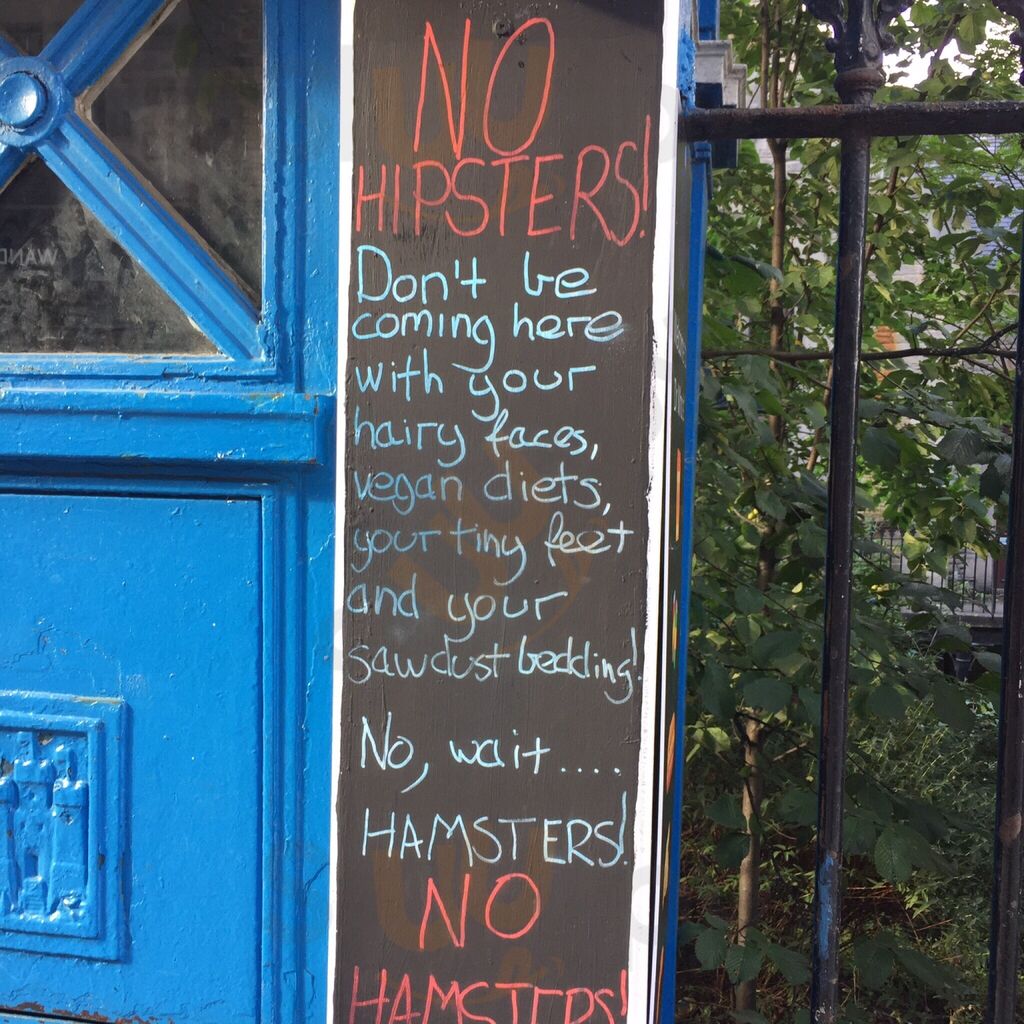 NO
HIPSTERS!
Don't be
coming here
with your
hairy faces,
vegan diets,
your tiny feet
and your
sawdust bedding!
No, wait....
HAMSTERS!
NO
HAMSTERS!